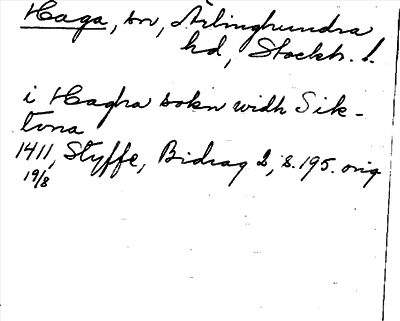 Haga, sn, Ärlinghundra
hd, Stockh. l.
i Hagha sokn widh Sik-
tuna
1411, Styffe, Bidrag 2, s. 195. orig
19/8